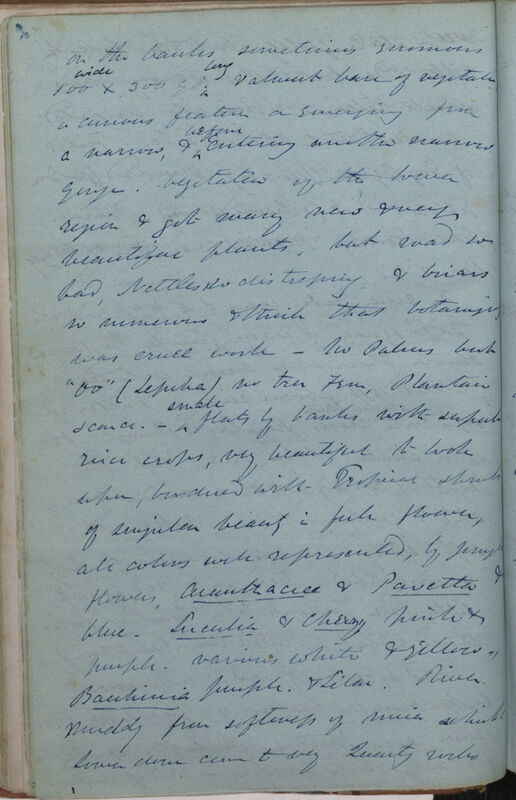 on the banks sometimes enormous
wide long
100 X 300 yds valuent bare of vegetation
a curious feature on emerging from
before
a narrow, & entering another narrow
gorge. Vegetation of the lower
region & got many new & very
beautiful plants, but road so
bad, Nettles so distressing & briars
so numerous & thick that botanising
was cruel work — No Palms but
"Oo" (Lepcha) no tree Fern, Plantain
small
scarce. — flats by banks with superb
rice crops, very beautiful to look
upon, bordered with Tropical shrubs
of singular beauty in full flower,
all colors well represented, by
flowers, Acanthacea & Pavetta &
blue. Luculia & Cherry pink &
purple. various white & yellow,
Bauhinia purple & Lilac. River
muddy from softness of mica schist.
lower down came to very Quartzy rocks